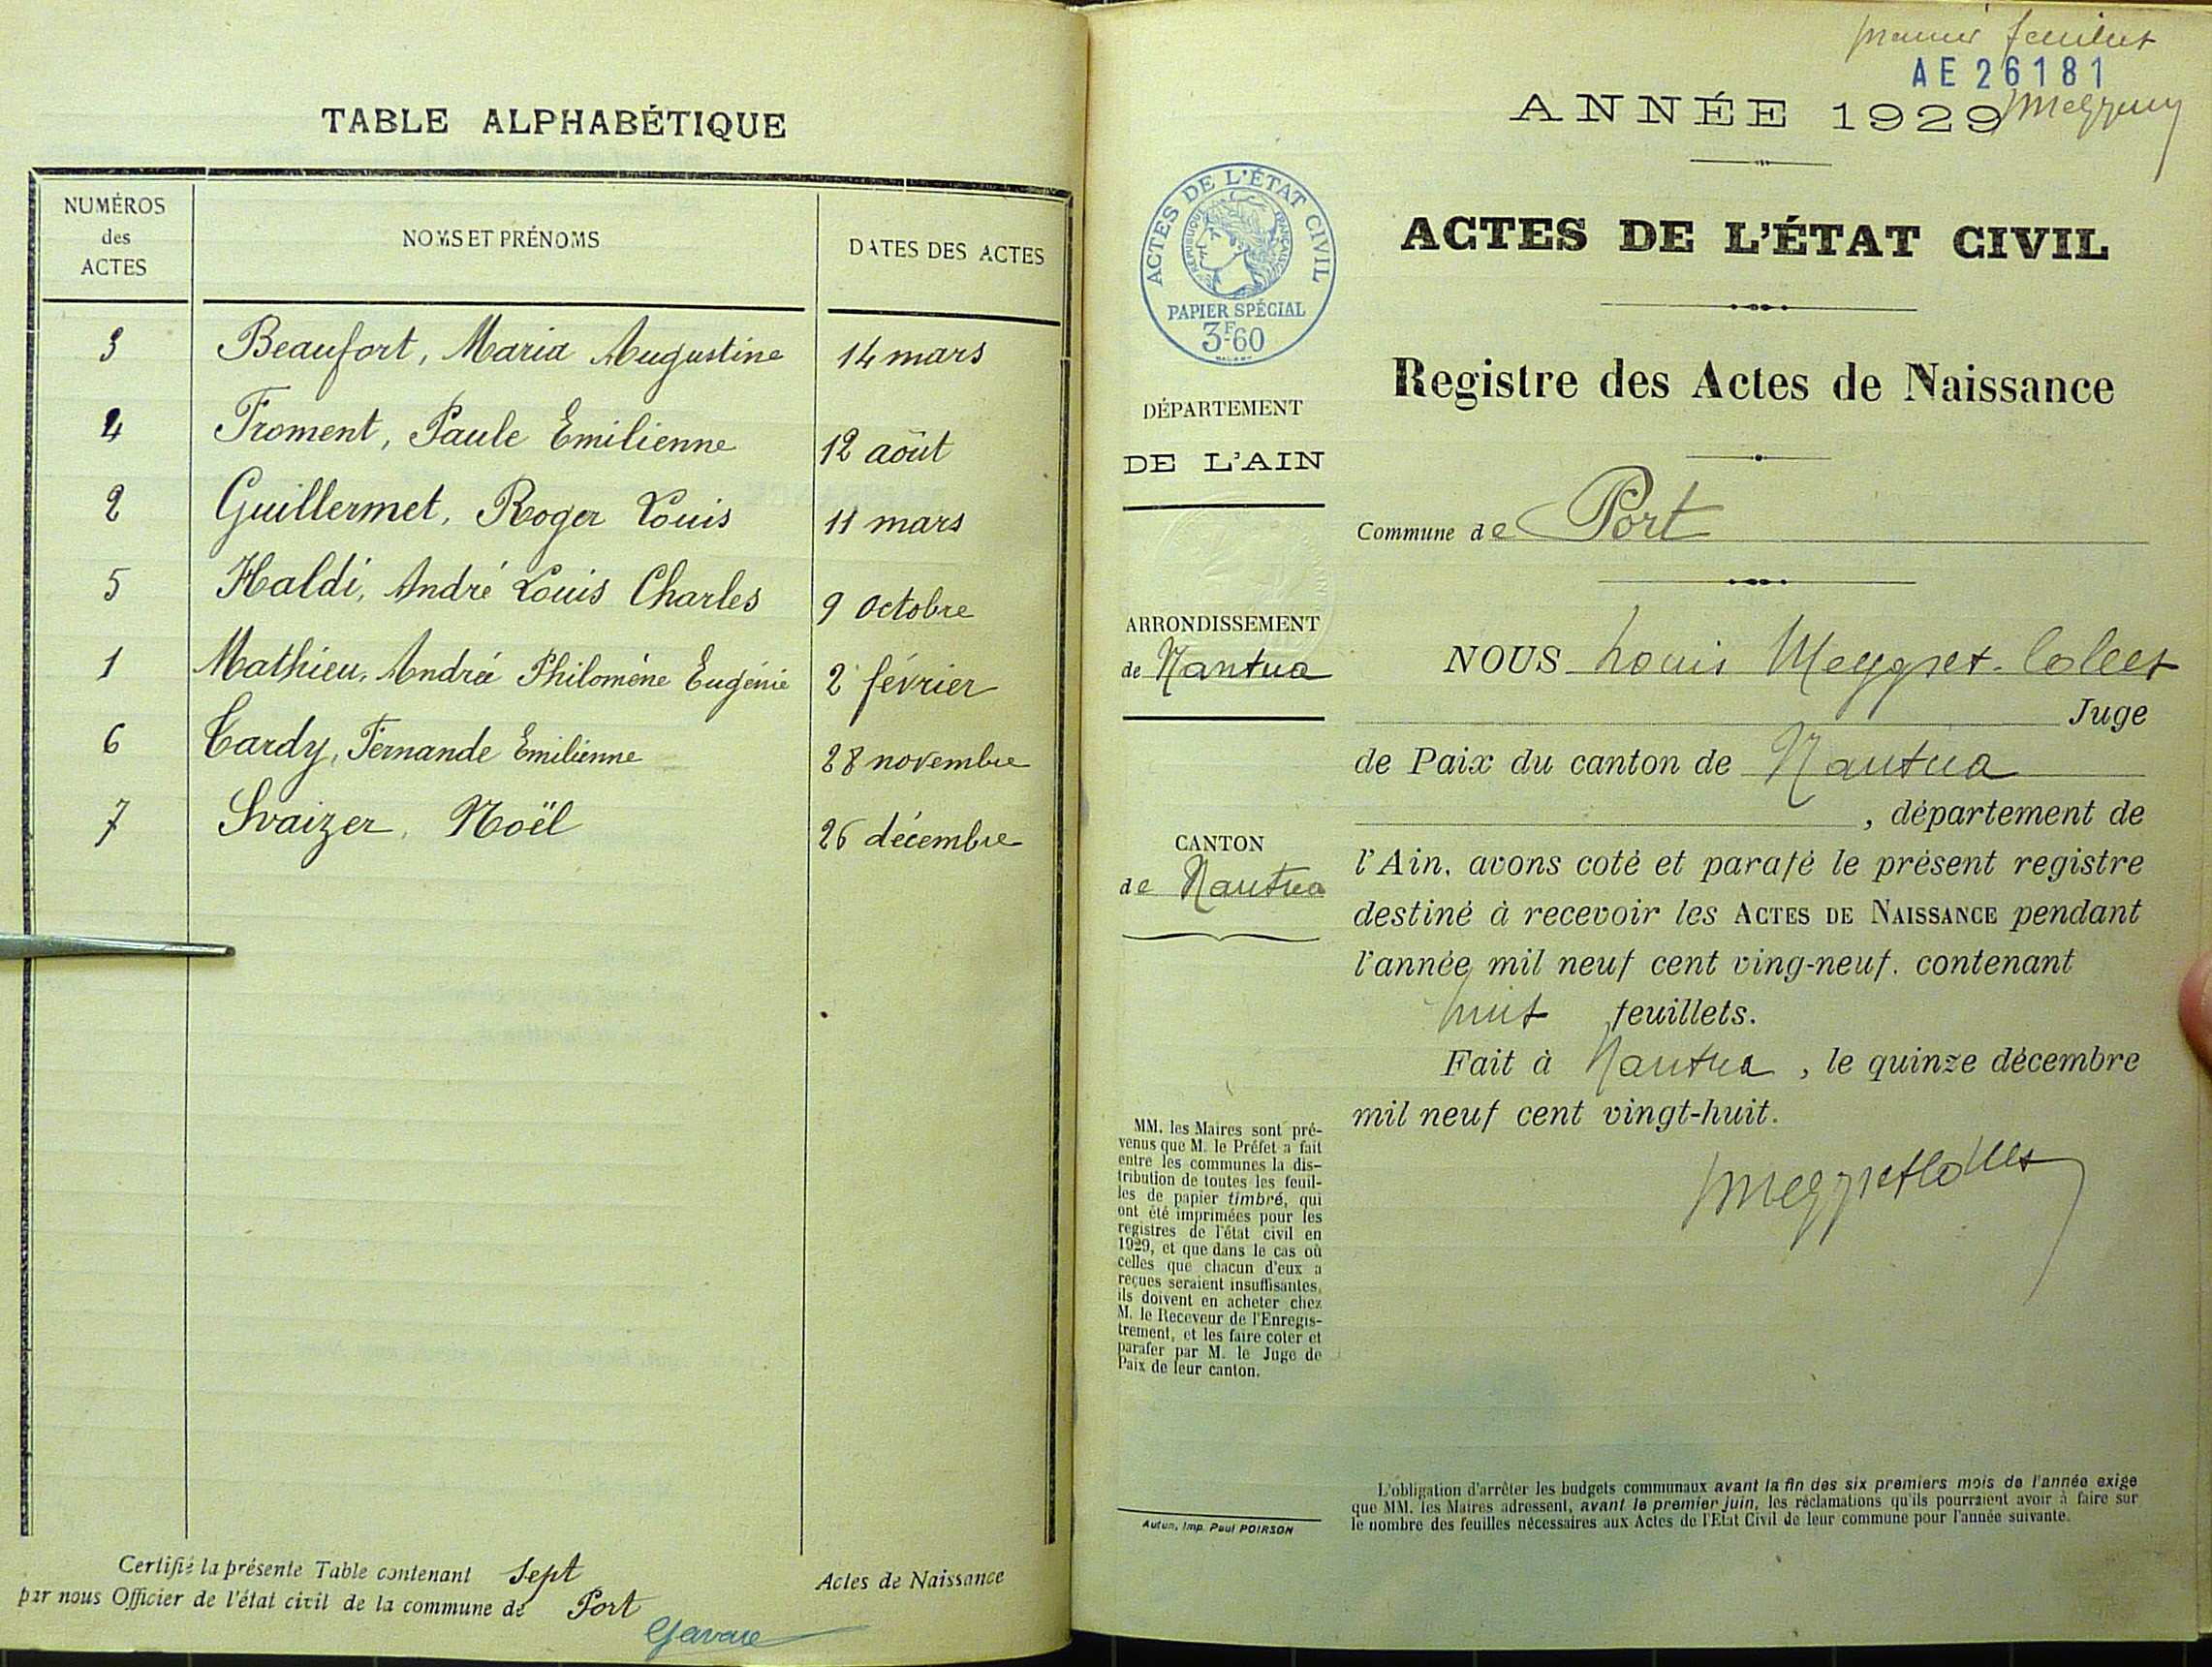 TABLE ALPHABÉTIQUE
NUMÉROS des ACTES
NOMS ET PRÉNOMS
DATES DES ACTES
3 Beaufort, Maria Augustine 14 mars
4 Froment, Paule Emilienne 12 août
2 Guillermet, Roger Louis 11 mars
5 Haldi, André Louis Charles 9 Octobre
1 Mathieu, Andrée Philomène Eugénie 2 février
6 Tardy, Fernande Emilienne 28 novembre
7 Svaizer, Noël 26 décembre
Certifié la présente Table contenant Sept Actes de Naissance
par nous Officier de l'état civil de la commune de Port
premier feuillet
AE 26181
ANNÉE 1929
ACTES DE L'ÉTAT CIVIL
RÉPUBLIQUE FRANÇAISE
PAPIER SPÉCIAL
3F60
DÉPARTEMENT
DE L'AIN
ARRONDISSEMENT
de Nantua
CANTON
de Nantua
MM. les Maires sont pré-
venus que M. le Préfet a fait
entre les communes la dis-
tribution de toutes les feuil-
les de papier timbré, qui
ont été imprimées pour les
registres de l'état civil en
1929, et que dans le cas où
celles que chacun d'eux a
reçues seraient insuffisantes,
ils doivent en acheter chez
M. le Receveur de l'Enregis-
trement, et les faire coter et
parafer par M. le Juge de
Paix de leur canton.
Autun, Imp. Paul POIRSON
ACTES DE L'ÉTAT CIVIL
Registre des Actes de Naissance
Commune de Port
NOUS Louis Meygret-Collet
Juge
de Paix du canton de Nantua
, département de
l'Ain, avons coté et parafé le présent registre
destiné à recevoir les ACTES DE NAISSANCE pendant
l'année mil neuf cent ving-neuf. contenant
huit feuillets.
Fait à Nantua, le quinze décembre
mil neuf cent vingt-huit.
L'obligation d'arrêter les budgets communaux avant la fin des six premiers mois de l'année exige
que MM. les Maires adressent, avant le premier juin, les réclamations qu'ils pourraient avoir à faire sur
le nombre des feuilles nécessaires aux Actes de l'Etat Civil de leur commune pour l'année suivante.